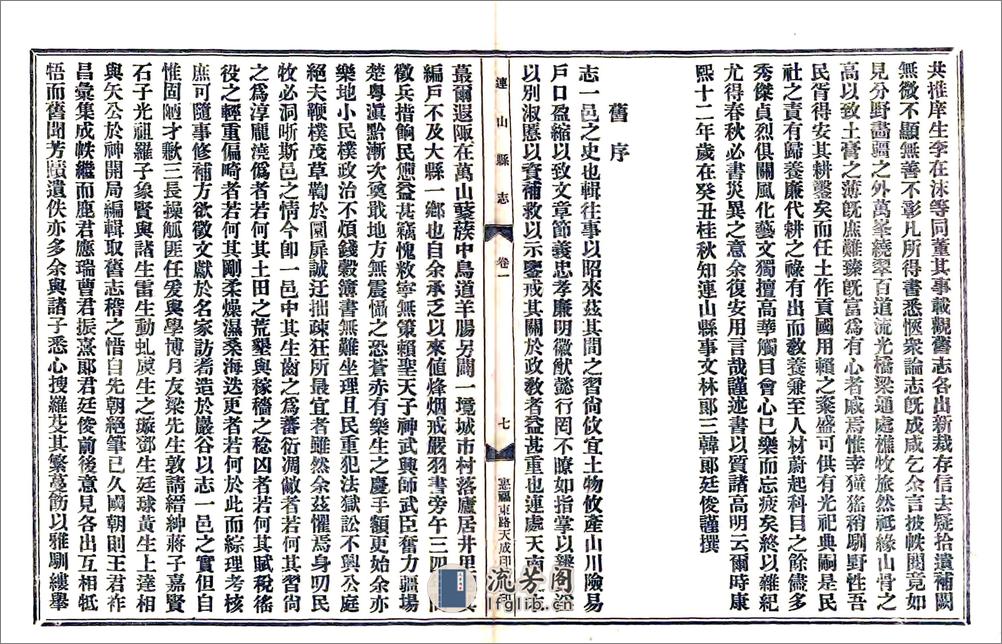 共推庠生李在沬等同董其事載觀舊志各出新裁存信去疑拾遺補闕
無微不顯無善不彰凡所得書悉愜衆論志既成咸乞余言披帙閱竟如
見分野畵疆之外萬峯繞翠百道流光橋梁通處樵牧旅然祗緣山骨之
高以致土膏之薄旣庶難臻旣富爲有心者戚焉惟幸獞猺稍馴野性吾
民胥得安其耕鑿矣而任土作貢國用賴之粢盛可供有光祀典嗣是民
社之責有歸養廉代耕之祿有出而敎養兼至人材蔚起科目之餘儘多
秀傑貞烈俱關風化藝文獨擅高華觸目會心已樂而忘疲矣終以雜紀
尤得春秋必書災異之意余復安用言哉謹述書以質諸高明云爾時康
熙十二年歲在癸丑桂秋知連山縣事文林郞三韓郞廷俊謹撰
舊序
志一邑之史也輯往事以昭來茲其間之習尙攸宜土物攸產山川險易
戶口盈縮以致文章節義忠孝廉明徽猷懿行罔不瞭如指掌以
以別淑慝以資補救以示鑒戒其關於政敎者益甚重也連處天南
連山縣志
卷一
七
惠福東路天成印
蕞爾遐陬在萬山蘂簇中鳥道羊腸另闢一境城市村落廬居井里
編戶不及大縣一鄕也自余承乏以來値烽烟戒嚴羽書旁午三四
徵兵措餉民憊益甚竊愧救寧無策賴聖天子神武興師武臣奮力疆場
楚粵滇黔漸次奠戢地方無震懾之恐蒼赤有樂生之慶手額更始余亦
樂地小民樸政治不煩錢穀簿書無難坐理且民重犯法獄訟不興公庭
絕夫鞭樸茂草鞠於圜扉誠迂拙疎狂所最宜者雖然余茲懼焉身叨民
牧必洞晰斯邑之情今卽一邑中其生齒之爲蕃衍凋敝者若何其風習
之爲淳龐澆僞者若何其土田之荒墾與稼穡之稔凶者若何其賦稅徭
役之輕重偏畸者若何其剛柔燥濕桑海迭更者若何於此而綜理考核
庶可隨事修補方欲徵文獻於名家訪耆造於巖谷以志一邑之實但自
惟固陋才歉三長操觚匪任爰與學博月友梁先生敦請縉紳蔣子嘉賢
石子光祖羅子象賢與諸生雷生動虬虞生之璇鄧生廷球黃生上達相
與矢公於神開局編輯取舊志稽之惜自先朝絕筆已久國朝則王君祚
昌彙集成帙繼而鹿君應瑞曹君振熹郞君廷俊前後意見各出互相牴
牾而舊聞芳蹟遺佚亦多余與諸子悉心搜羅芟其繁蕪飭以雅馴縷舉
流芳阁
lfglib.cn